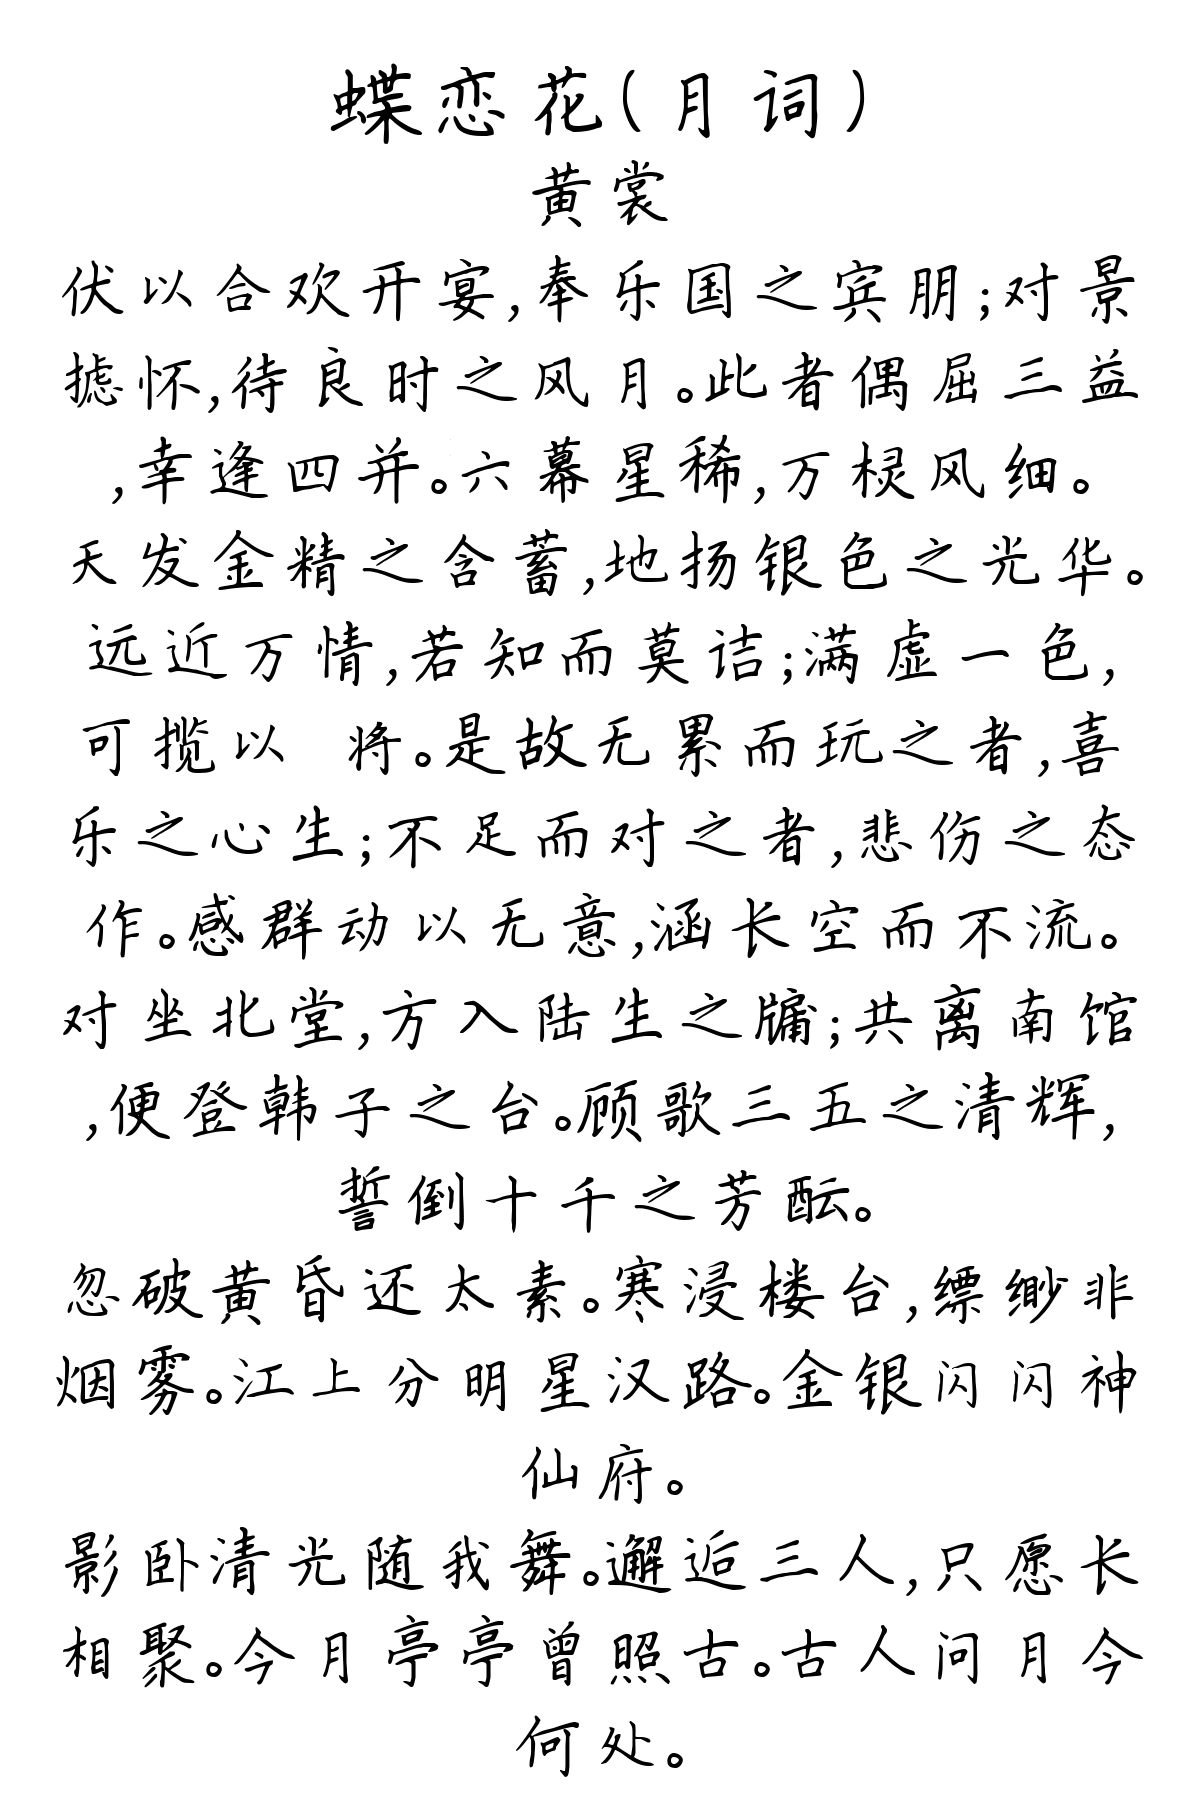 蝶恋花(月词)
黄裳
伏以合欢开宴,奉乐国之宾朋;对景
摅怀,待良时之风月。此者偶屈三益
,幸逢四并。六幕星稀,万棂风细。
天发金精之含蓄,地扬银色之光华。
远近万情,若知而莫诘;满虚一色,
可揽以 将。是故无累而玩之者,喜
乐之心生;不足而对之者,悲伤之态
作。感群动以无意,涵长空而不流。
对坐北堂,方入陆生之牖;共离南馆
,便登韩子之台。顾歌三五之清辉,
誓倒十千之芳酝。
忽破黄昏还太素。寒浸楼台,缥缈非
烟雾。江上分明星汉路。金银闪闪神
仙府。
影卧清光随我舞。邂逅三人,只愿长
相聚。今月亭亭曾照古。古人问月今
何处。